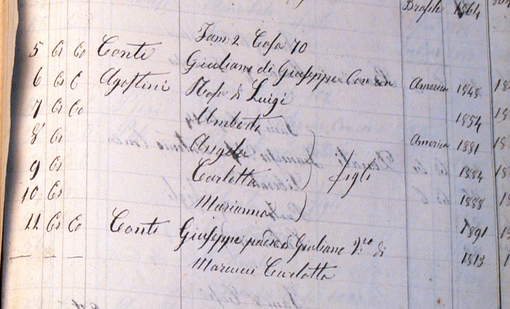 Brasile 1864
Fam 2 Casa 70
5 Cr Co Conti Giuliano di Giuseppe Con
6 Cr C Agostini Rosa di Luigi America 1848
7 Cr Co Umberto 1854
8 Cr Angelo America 1881
9 Cr Carlotta figli 1884
10 Cr Marianna 1888
11 Cr Co Conti Giuseppe Giuliano di 1891
Marcucci Carlotta 1813